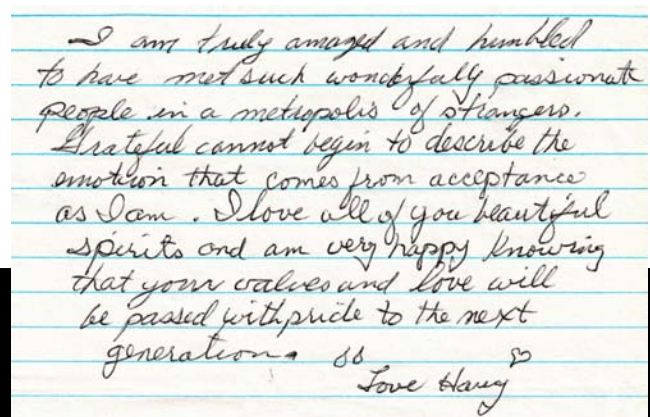 I am truly amazed and humbled
to have met such wonderfully passionate
people in a metropolis of strangers.
Grateful cannot begin to describe the
emotion that comes from acceptance
as I am. I love all of you beautiful
spirits and am very happy knowing
that your values and love will
be passed with pride to the next
generation.
Love